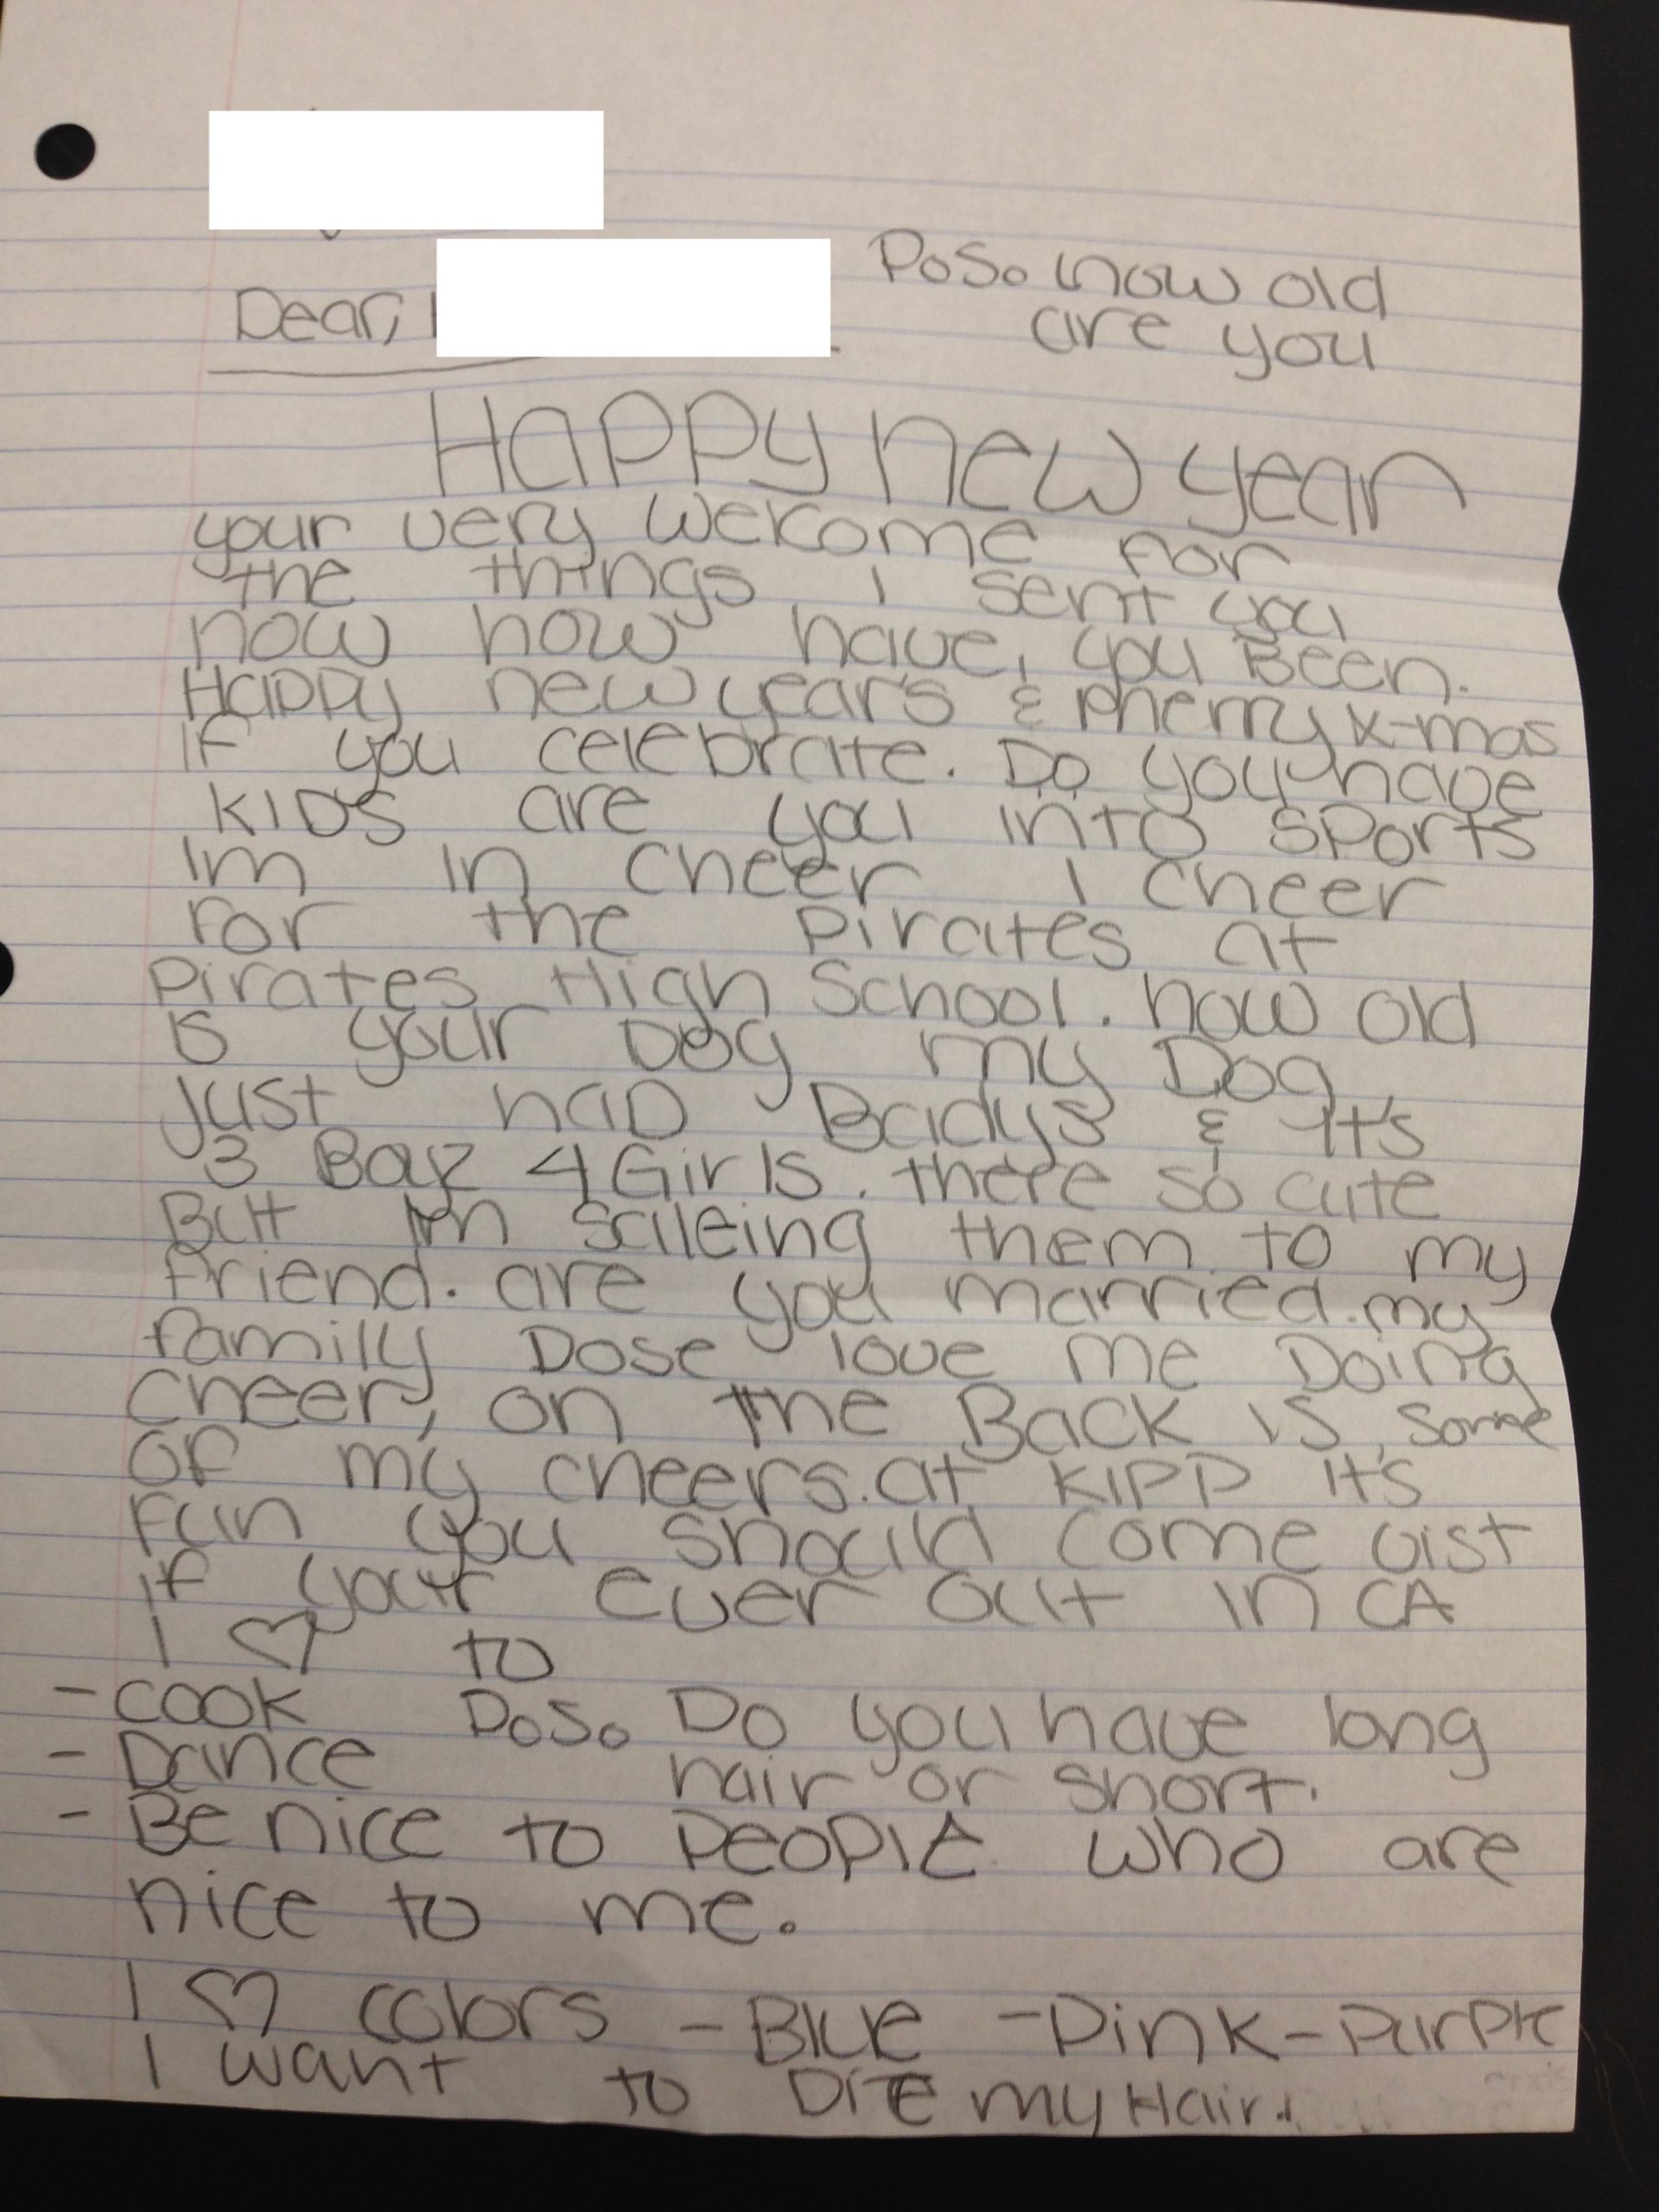 Dear,
P.S. how old
are you
Happy new year
your very welcome for
the things I sent you
now how have you Been.
Happy new year's & Merry x-mas
If you celebrate. Do you have
KIDS are you into sports
Im in cheer I cheer
for the pirates at
Pirates High School. how old
is your Dog my Dog
just had Badys & It's
3 Boyz 4 Girls. there so cute
But Im saileing them to my
friend. are you married. my
family Dose love me Doing
cheer, on the Back is some
of my cheers. at KIPP It's
fun you should come vist
if your ever out in CA
I ♡ to
- cook
- Dance
P.S. Do you have long
hair or short.
- Be nice to people who are
nice to me.
I ♡ colors - Blue - Pink - Purple
I want to Die my Hair.